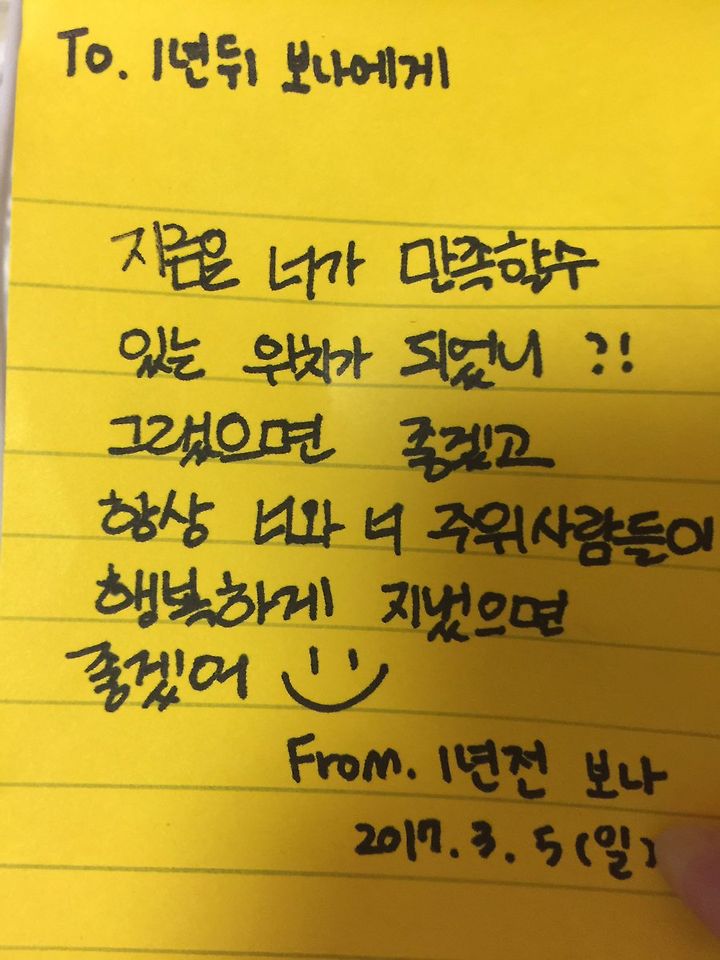 To. 1년뒤 보나에게
지금은 너가 만족할수
있는 위치가 되었니 ?!
그랬으면 좋겠고
항상 너와 너 주위사람들이
행복하게 지냈으면
좋겠어
From. 1년전 보나
2017. 3. 5 (일)